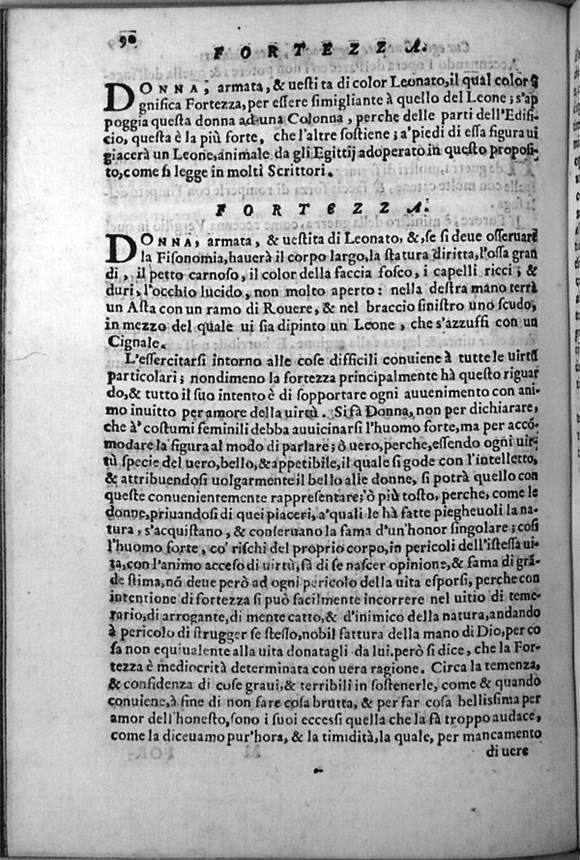 90
FORTEZZA.
DONNA, armata, & uestita di color Leonato, il qual color si
gnifica Fortezza, per eſſere ſimigliante à quello del Leone; s'ap
poggia queſta donna ad una Colonna, perche delle parti dell'Edifi-
cio, queſta è la più forte, che l'altre ſoſtiene; a' piedi di eſſa figura ui
giacerà un Leone, animale da gli Egittij adoperato in queſto propoſi-
to, come ſi legge in molti Scrittori.
FORTEZZA.
DONNA, armata, & ueſtita di Leonato, &, ſe ſi deue oſſeruare
la Fiſonomia, hauerà il corpo largo, la ſtatura diritta, l'oſſa gran
di, il petto carnoſo, il color della faccia foſco, i capelli ricci, &
duri, l'occhio lucido, non molto aperto: nella deſtra mano terrà
un Aſta con un ramo di Rouere, & nel braccio ſiniſtro uno ſcudo,
in mezzo del quale ui ſia dipinto un Leone, che s'azzuffi con un
Cignale.
L'eſſercitarſi intorno alle coſe difficili conuiene à tutte le uirtù
particolari; nondimeno la fortezza principalmente hà queſto riguar
do, & tutto il ſuo intento è di ſopportare ogni auuenimento con ani-
mo inuitto per amore della uirtù. Si fà Donna, non per dichiarare,
che à' coſtumi feminili debba auuicinarſi l'huomo forte, ma per acco-
modare la figura al modo di parlare; ò uero, perche, eſſendo ogni uir-
tù ſpecie del uero, bello, & appetibile, il quale ſi gode con l'intelletto,
& attribuendoſi uolgarmente il bello alle donne, ſi potrà quello con
queſte conuenientemente rappreſentare; ò più toſto, perche, come le
donne, priuandoſi di quei piaceri, a' quali le hà fatte piegheuoli la na-
tura, s'acquiſtano, & conſeruano la fama d'un'honor ſingolare; coſi
l'huomo forte, co' riſchi del proprio corpo, in pericoli dell'iſteſſa ui-
ta, con l'animo acceſo di uirtù, fà di ſe naſcer opinione, & fama di grã-
de ſtima, nõ deue però ad ogni pericolo della uita eſporſi, perche con
intentione di fortezza ſi può facilmente incorrere nel uitio di teme-
rario, di arrogante, di mente catto, & d'inimico della natura, andando
à pericolo di ſtrugger ſe ſteſſo, nobil fattura della mano di Dio, per co
ſa non equiualente alla uita donatagli da lui. però ſi dice, che la For-
tezza è mediocrità determinata con uera ragione. Circa la temenza,
& confidenza di coſe graui, & terribili in ſoſtenerle, come & quando
conuiene, à fine di non fare coſa brutta, & per far coſa belliſſima per
amor dell'honeſto, ſono i ſuoi ecceſſi quella che la fà troppo audace,
come la diceuamo pur'hora, & la timidità, la quale, per mancamento
di uere